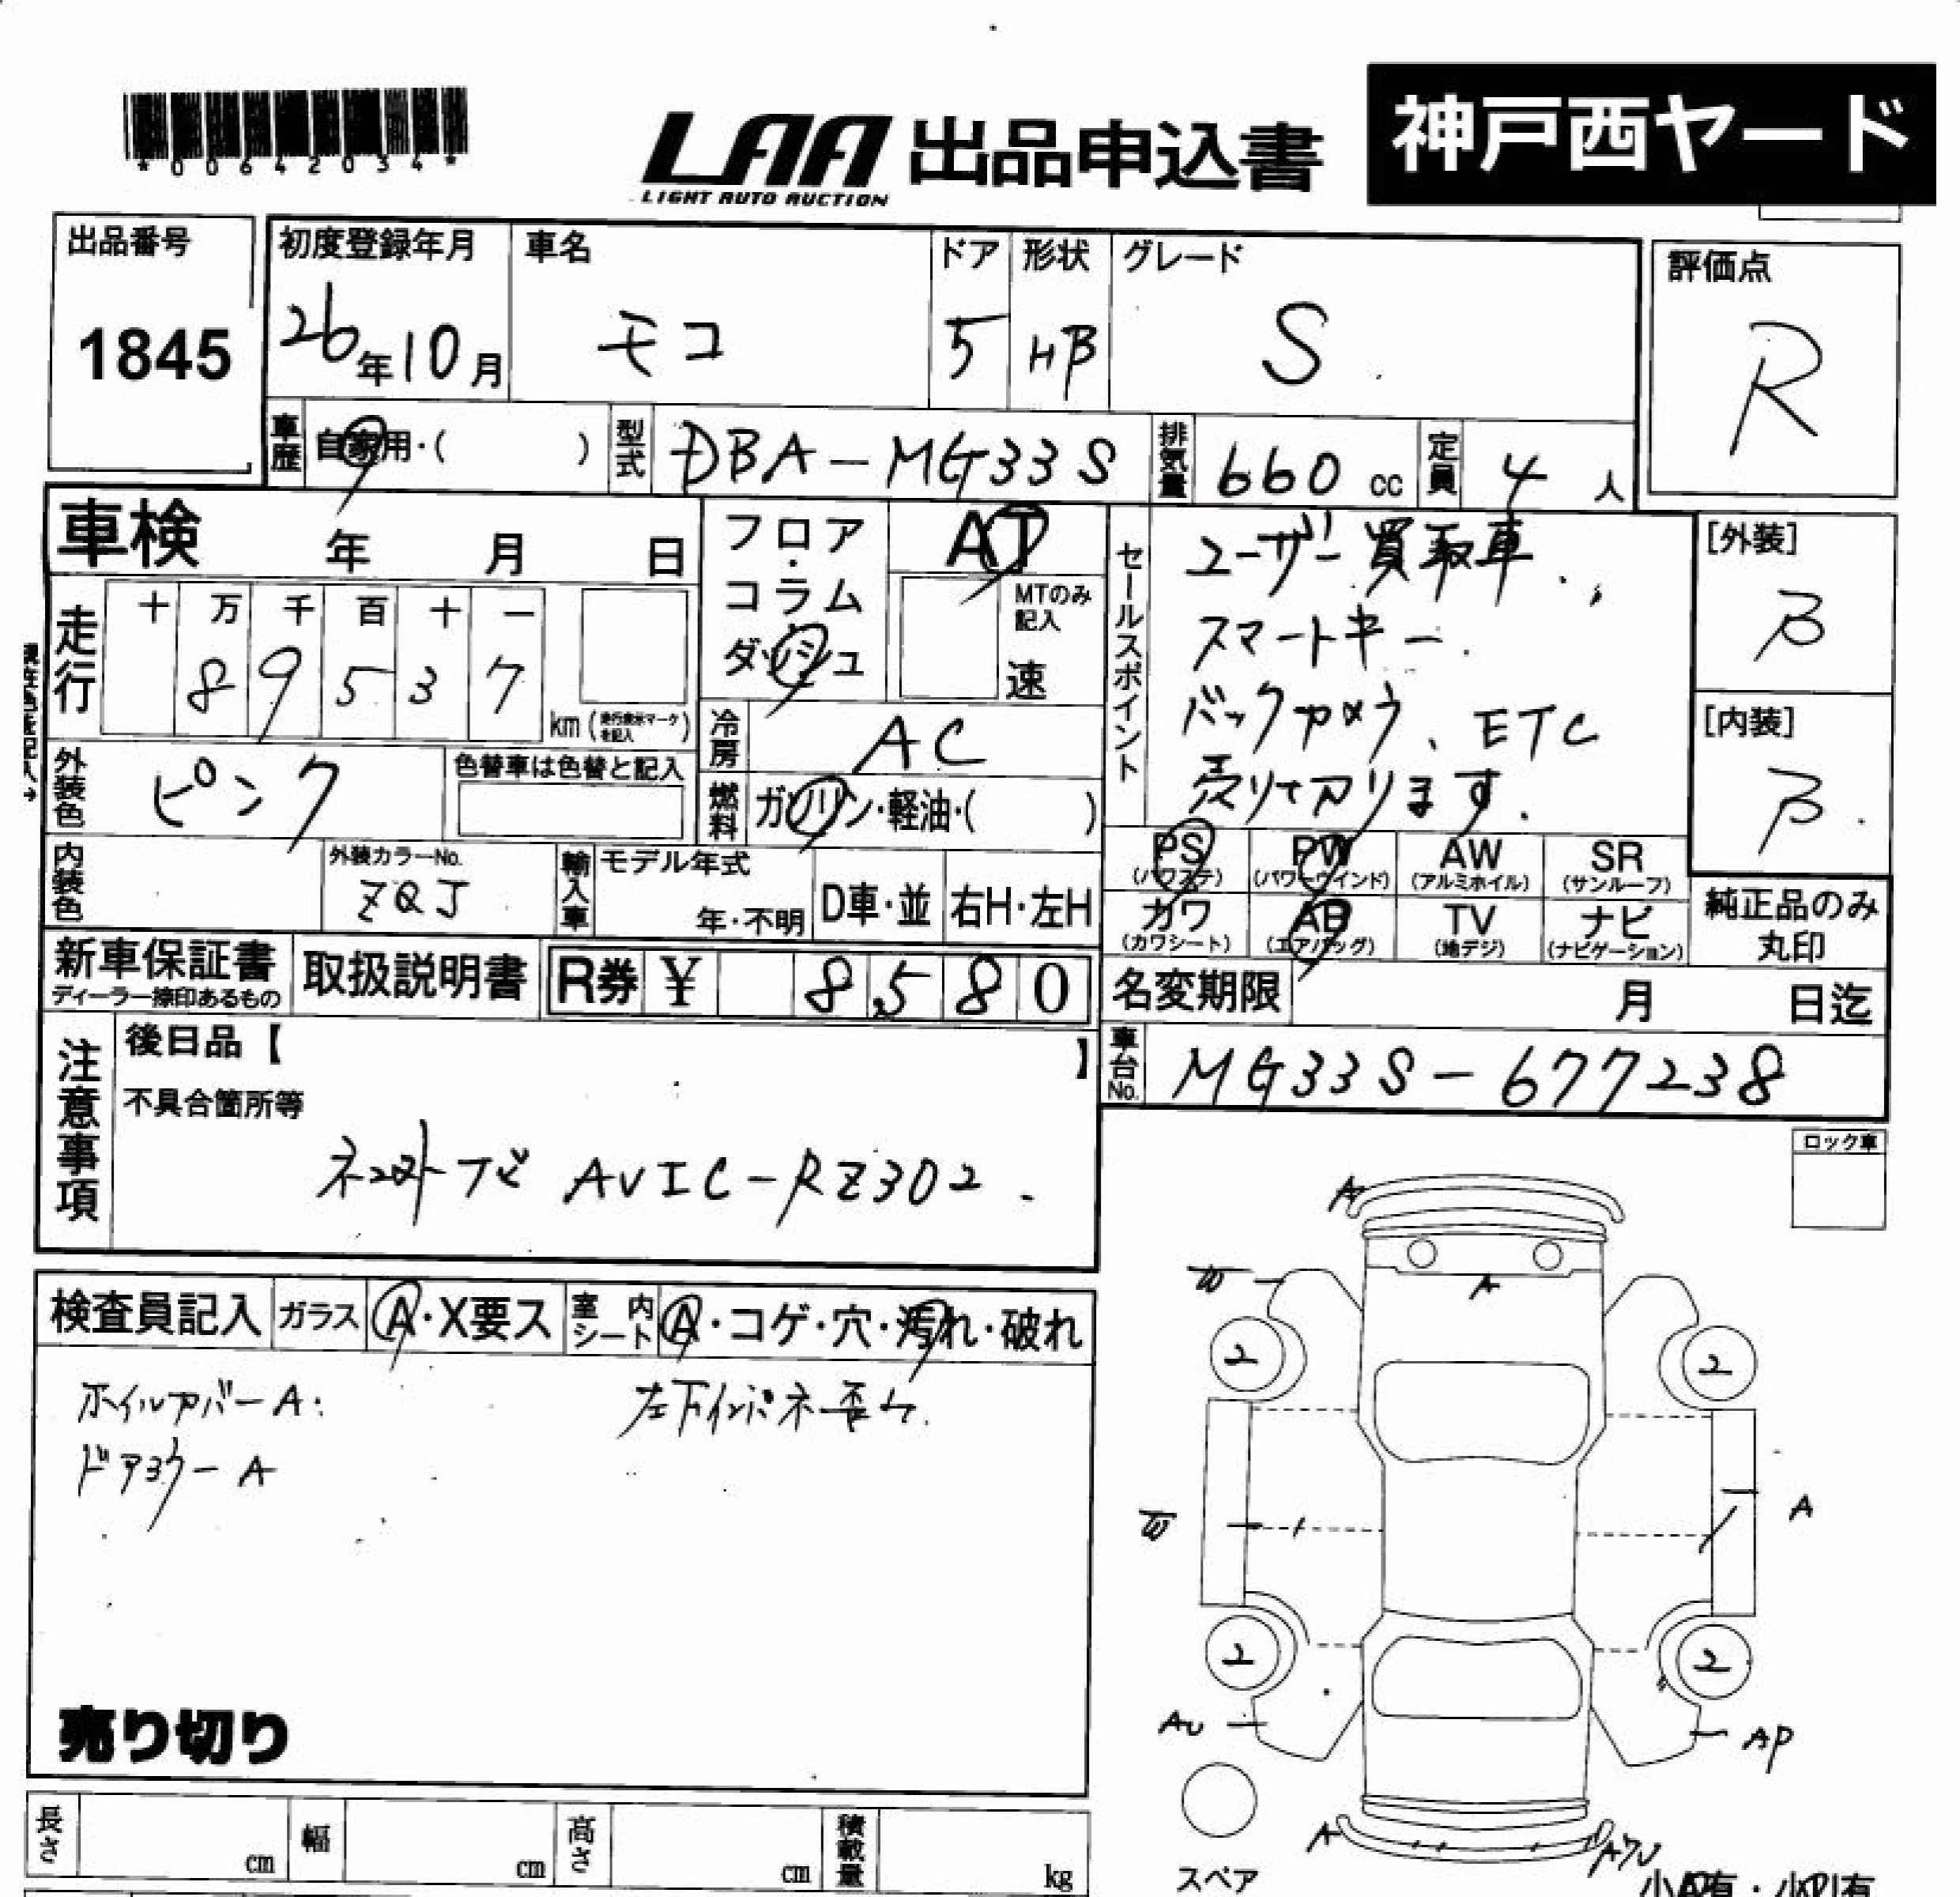 *00642034*
LAA 出品申込書
LIGHT AUTO AUCTION
神戸西ヤード
出品番号
1845
初度登録年月
26年10月
車名
モコ
ドア
5
形状
HB
グレード
S
評価点
R
車歴
自家用・( )
型式
DBA-MG33S
排気量
660 cc
定員
4 人
車検 年 月 日
フロア・コラム・ダッシュ
AT
MTのみ記入
速
走行
十 万 千 百 十 一
8 9 5 3 7
km(走行表示マークを記入)
冷房
AC
外装色
ピンク
色替車は色替と記入
燃料
ガソリン・軽油・( )
セールスポイント
ユーザー買取車.
スマートキー.
バックカメラ、ETC
売り切ります.
[外装]
B
[内装]
B
内装色
外装カラーNo.
ZQJ
輸入車
モデル年式
年・不明
D車・並
右H・左H
PS
(パワステ)
PW
(パワーウインド)
AW
(アルミホイル)
SR
(サンルーフ)
カワ
(カワシート)
AB
(エアバッグ)
TV
(地デジ)
ナビ
(ナビゲーション)
純正品のみ
丸印
新車保証書
ディーラー捺印あるもの
取扱説明書
R券 ¥ 8580
名変期限 月 日迄
注意事項
後日品【 】
不具合箇所等
AVIC-RZ302.
車台No.
MG33S-677238
ロック車
検査員記入
ガラス
A・X要ス
室内シート
A・コゲ・穴・汚れ・破れ
ホイルカバーA.
左下インパネ歪ム.
ドアミラーA
売り切り
A
W
A
2
2
W
A
2
2
AU
AP
A
スペア
長さ cm
幅 cm
高さ cm
積載量 kg